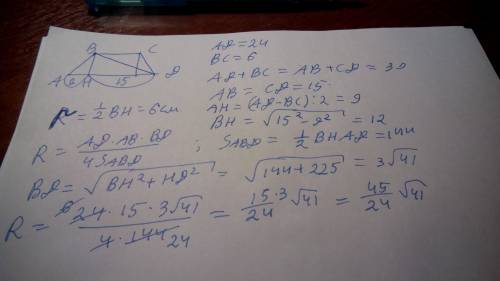 B C
A H 15 D
AD = 24
BC = 6
AD + BC = AB + CD = 30
AB = CD = 15
AH = (AD - BC) : 2 = 9
BH = √15² - 9² = 12
R = 1/2 BH = 6 см
R = AD · AB · BD / 4 S ABD ; S ABD = 1/2 BH AD = 144
BD = √BH² + HD² = √144 + 225 = 3√41
R = 24 · 15 · 3√41 / 4 · 144 24 = 15/24 · 3√41 = 45/24 √41